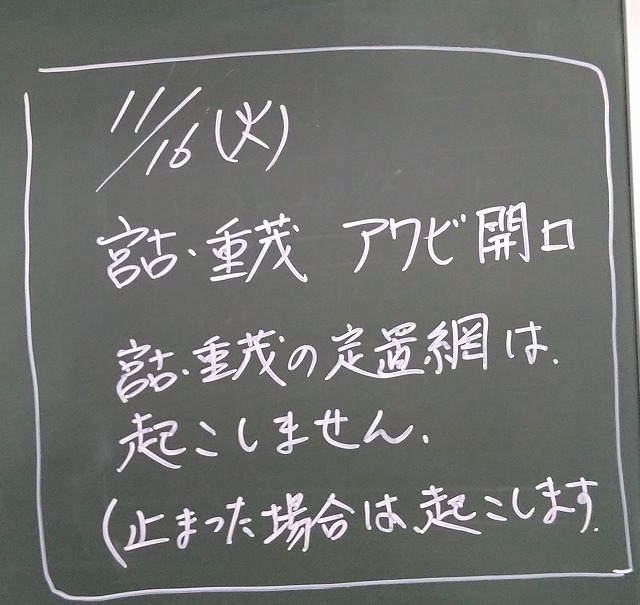 11/16(火)
宮古・重茂 アワビ開口
宮古・重茂の定置網は、
起こしません.
(止まった場合は、起こします.